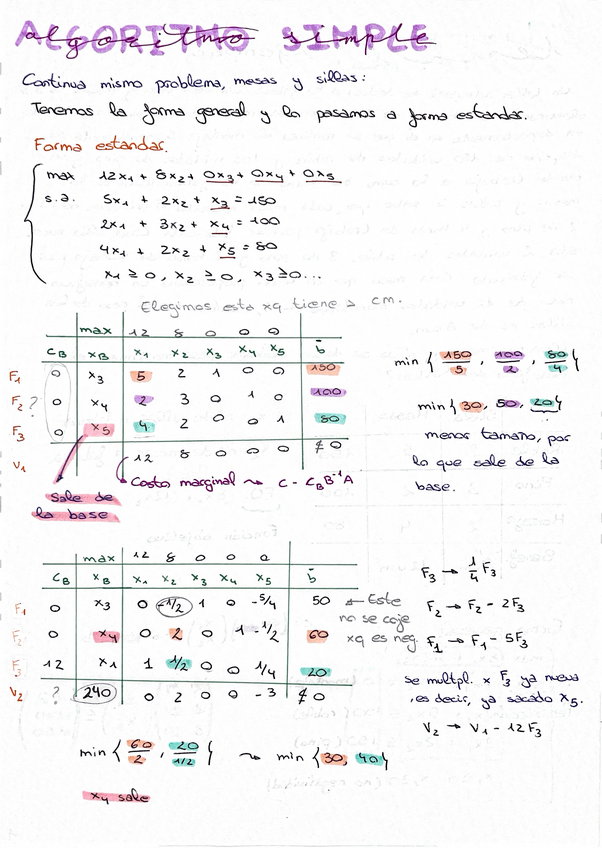 ALGORITMO SIMPLE
algoritmo simple
Continua mismo problema, mesas y sillas:
Tenemos la forma general y la pasamos a forma estandar.
Forma estandar.
max 12x₁ + 8x₂ + 0x₃ + 0x₄ + 0x₅
s.a. 5x₁ + 2x₂ + x₃ = 150
2x₁ + 3x₂ + x₄ = 100
4x₁ + 2x₂ + x₅ = 80
x₁ ≥ 0, x₂ ≥ 0, x₃ ≥ 0...
Elegimos esta xq tiene > cm.
max 12 8 0 0 0
C_B X_B x₁ x₂ x₃ x₄ x₅ b̄
F₁ 0 x₃ 5 2 1 0 0 150
F₂ ? 0 x₄ 2 3 0 1 0 100
F₃ 0 x₅ 4 2 0 0 1 80
V₁ 12 8 0 0 0 ≠0
Sale de la base
Costo marginal ⇝ C - C_B B⁻¹A
min { 150/5, 100/2, 80/4 }
min { 30, 50, 20 }
menor tamaño, por
lo que sale de la
base.
max 12 8 0 0 0
C_B X_B x₁ x₂ x₃ x₄ x₅ b̄
F₁ 0 x₃ 0 -1/2 1 0 -5/4 50
F₂ 0 x₄ 0 2 0 1 -1/2 60
F₃ 12 x₁ 1 1/2 0 0 1/4 20
V₂ ? 240 0 2 0 0 -3 ≠0
← Este
no se coje
xq es neg.
F₃ → 1/4 F₃
F₂ → F₂ - 2F₃
F₁ → F₁ - 5F₃
se multpl. x F₃ ya nueva
,es decir, ya sacado x₅.
V₂ → V₁ - 12F₃
min { 60/2, 20/1/2 } ⇝ min { 30, 40 }
x₄ sale